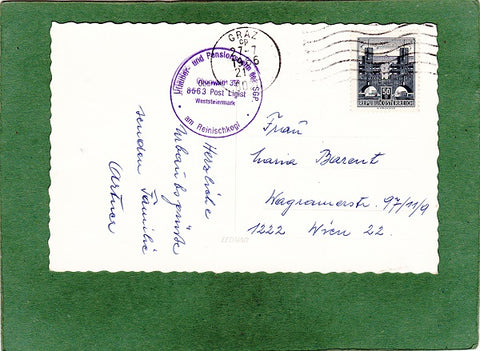 GRAZ
27-7
21
und Pensionisten der SGP
8563 Post Ligist
Weststeiermark
am Reinischkogl
50
REPUBLIK ÖSTERREICH
Herzliche
Urlaubsgrüße
senden Familie
Artner
Frau
Barent
Wagramerstr. 97/11/9
1222 Wien 22.